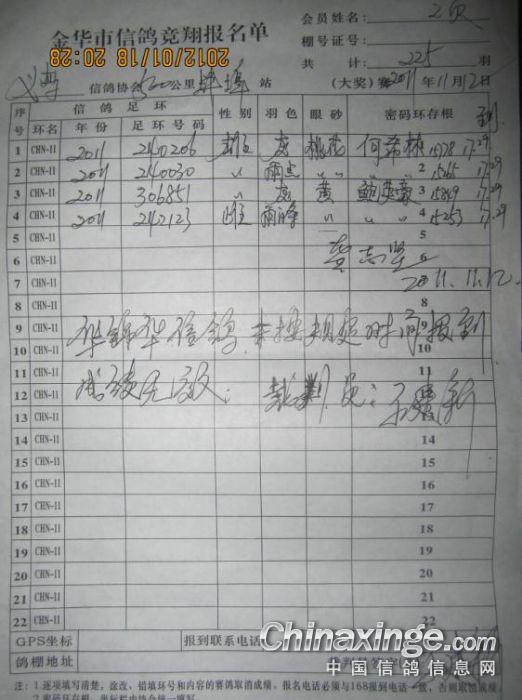 会员姓名:
金华市信鸽竞翔报名单
2012/01/18 20:28
棚号证号:
共 计: 225 羽
信鸽协会 500公里 站 (大奖)赛 2011年11月12日
序号 信鸽足环 性别 羽色 眼砂 密码环存根
环名 年份 足环号码
1 CHN-11 2011 240206 雄 灰 桃花 何希林 17.29
2 CHN-11 2011 240030 〃 雨点 〃 〃 2 17.29
3 CHN-11 2011 306851 〃 灰 黄 3 17.29
4 CHN-11 2011 242123 雌 〃 〃 4 17.29
5 CHN-11 5
6 CHN-11 6
7 CHN-11 2011.11.12
8 CHN-11 8
9 CHN-11 华锦华信鸽,未按规定时间报到 9
10 CHN-11 10
11 CHN-11 11
12 CHN-11 成绩无效: 裁判员:
13 CHN-11
14 CHN-11 14
15 CHN-11 15
16 CHN-11 16
17 CHN-11 17
18 CHN-11 18
19 CHN-11 19
20 CHN-11 20
21 CHN-11 21
22 CHN-11 22
GPS坐标 报到联系电话
鸽棚地址
Chinaxinge.com
中国信鸽信息网
注:1.逐项填写清楚,涂改、错填环号和内容的赛鸽取消成绩。报名电话必须与168报到电话一致,否则取消成绩。